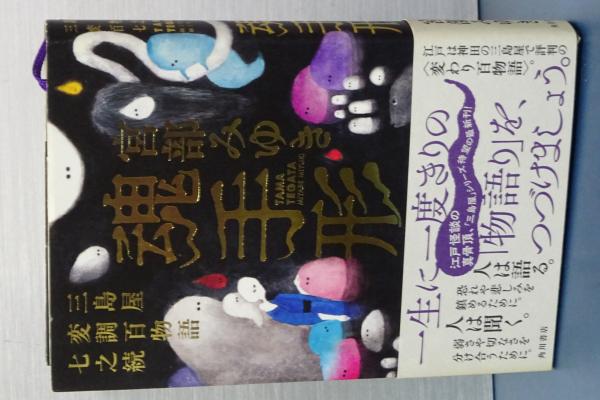 魂手形
宮部みゆき
魂手形
TAMA
TEGATA
MIYABE MIYUKI
三島屋
変調百物語
七之続
江戸は神田の三島屋で評判の
〈変わり百物語〉。
一生に一度きりの
「物語り」を、
つづけましょう。
江戸怪談の
真骨頂、「三島屋」シリーズ待望の最新刊!
人は語る。
恐れや悲しみを
鎮めるために。
人は聞く。
弱さや切なさを
分け合うために。
角川書店